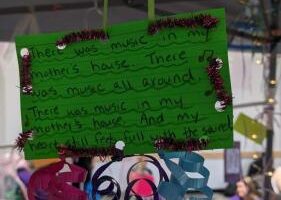 There was music in my
mother's house. There
was music all around.
There was music in my
mother's house. And my
heart still feels full with the sound